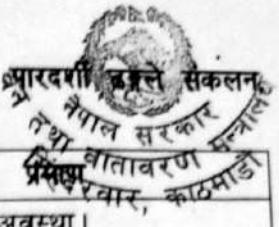 पारदर्शी ढङ्गले संकलन
नेपाल सरकार
तथा वातावरण मन्त्रालय
प्रमाण
सिंहदरवार, काठमाडौं
अवस्था।